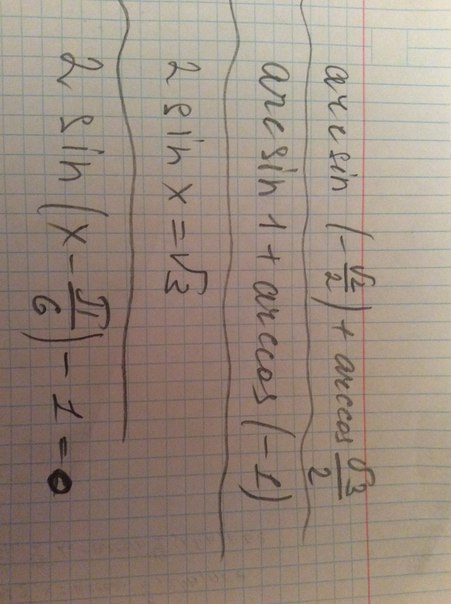 arcsin (-√2/2) + arccos √3/2
arcsin 1 + arccos (-1)
2 sin x = √3
2 sin (x - π/6) - 1 = 0